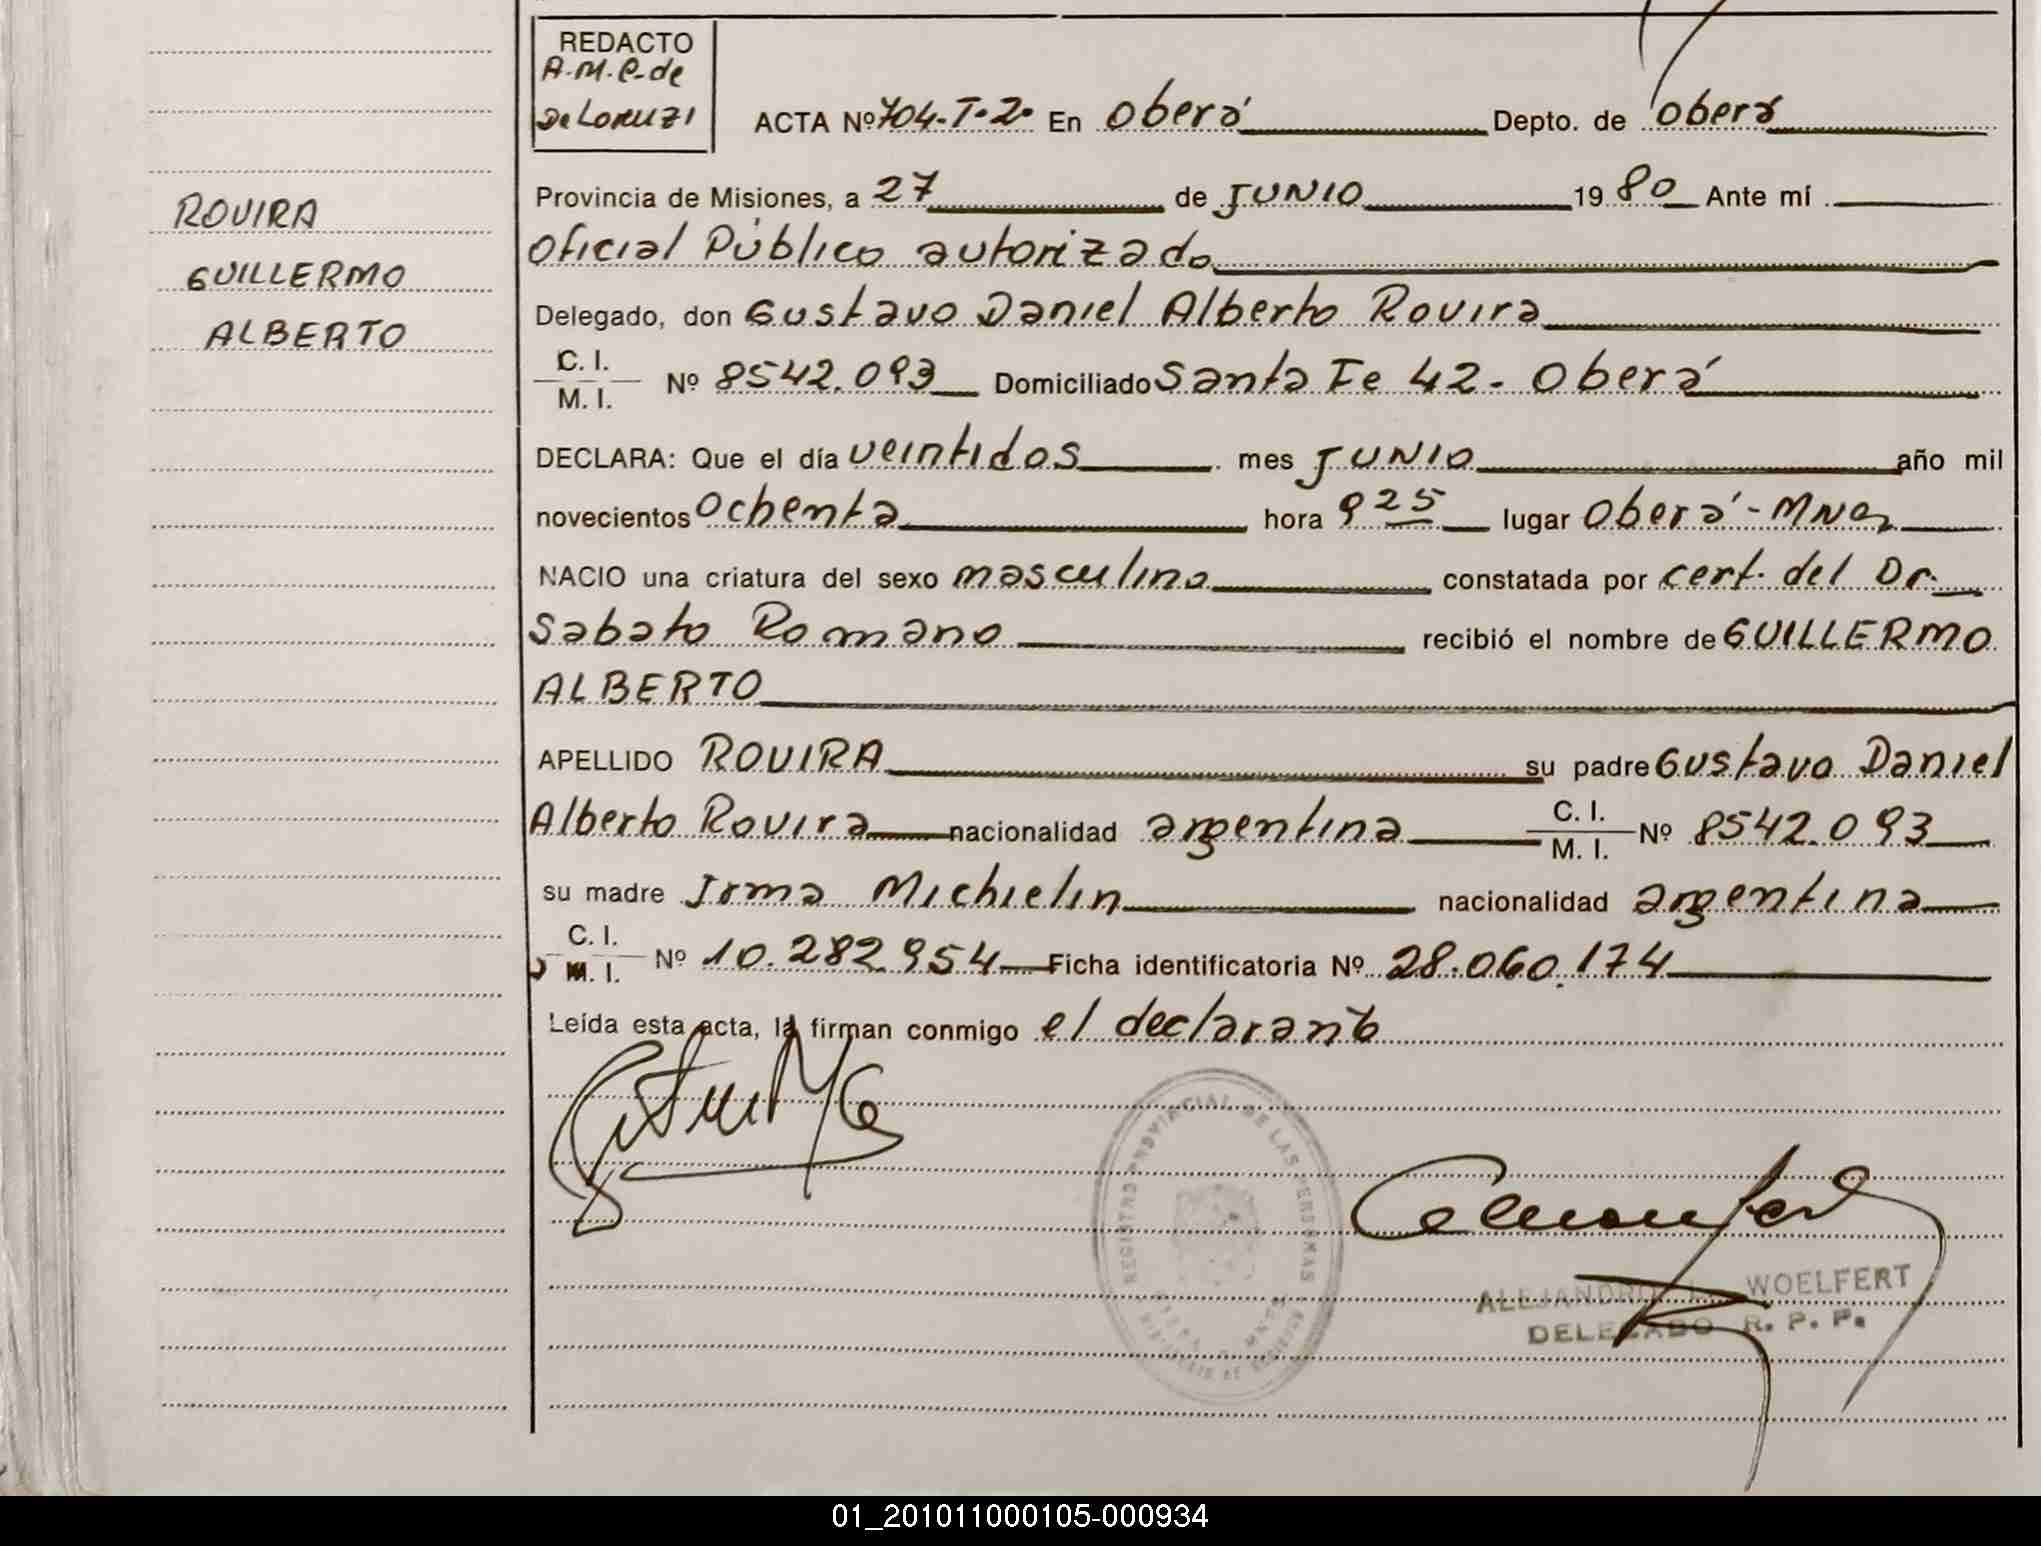 REDACTO
A.M.C. de
De Lorenzi
ACTA Nº 704-T-2º En Oberá Depto. de Oberá
Provincia de Misiones, a 27 de JUNIO 1980 Ante mí
Oficial Público autorizado
Delegado, don Gustavo Daniel Alberto Rovira
C. I.
M. I. Nº 8542.093 Domiciliado Santa Fe 42 - Oberá
DECLARA: Que el día veintidos mes JUNIO año mil
novecientos Ochenta hora 9 25 lugar Oberá - Mnes
NACIO una criatura del sexo masculino constatada por cert. del Dr.
Sabato Romano recibió el nombre de GUILLERMO
ALBERTO
APELLIDO ROVIRA su padre Gustavo Daniel
Alberto Rovira nacionalidad argentina C. I.
M. I. Nº 8542.093
su madre Irma Michielin nacionalidad argentina
C. I.
M. I. Nº 10.282.954 Ficha identificatoria Nº 28.060.174
Leída esta acta, la firman conmigo el declarante
ROVIRA
GUILLERMO
ALBERTO
REGISTRO PROVINCIAL DE LAS PERSONAS
ALEJANDRO L. WOELFERT
DELEGADO R. P. P.
01_201011000105-000934